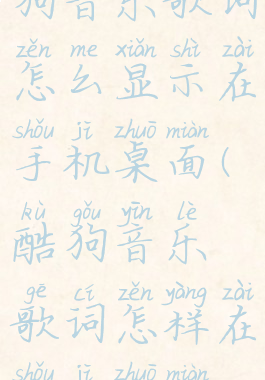 狗音乐歌词
zěn me xiǎn shì zài
怎么显示在
shǒu jī zhuō miàn
手机桌面(
kù gǒu yīn lè
酷狗音乐
gē cí zěn yàng zài
歌词怎样在
shǒu jī zhuō miàn